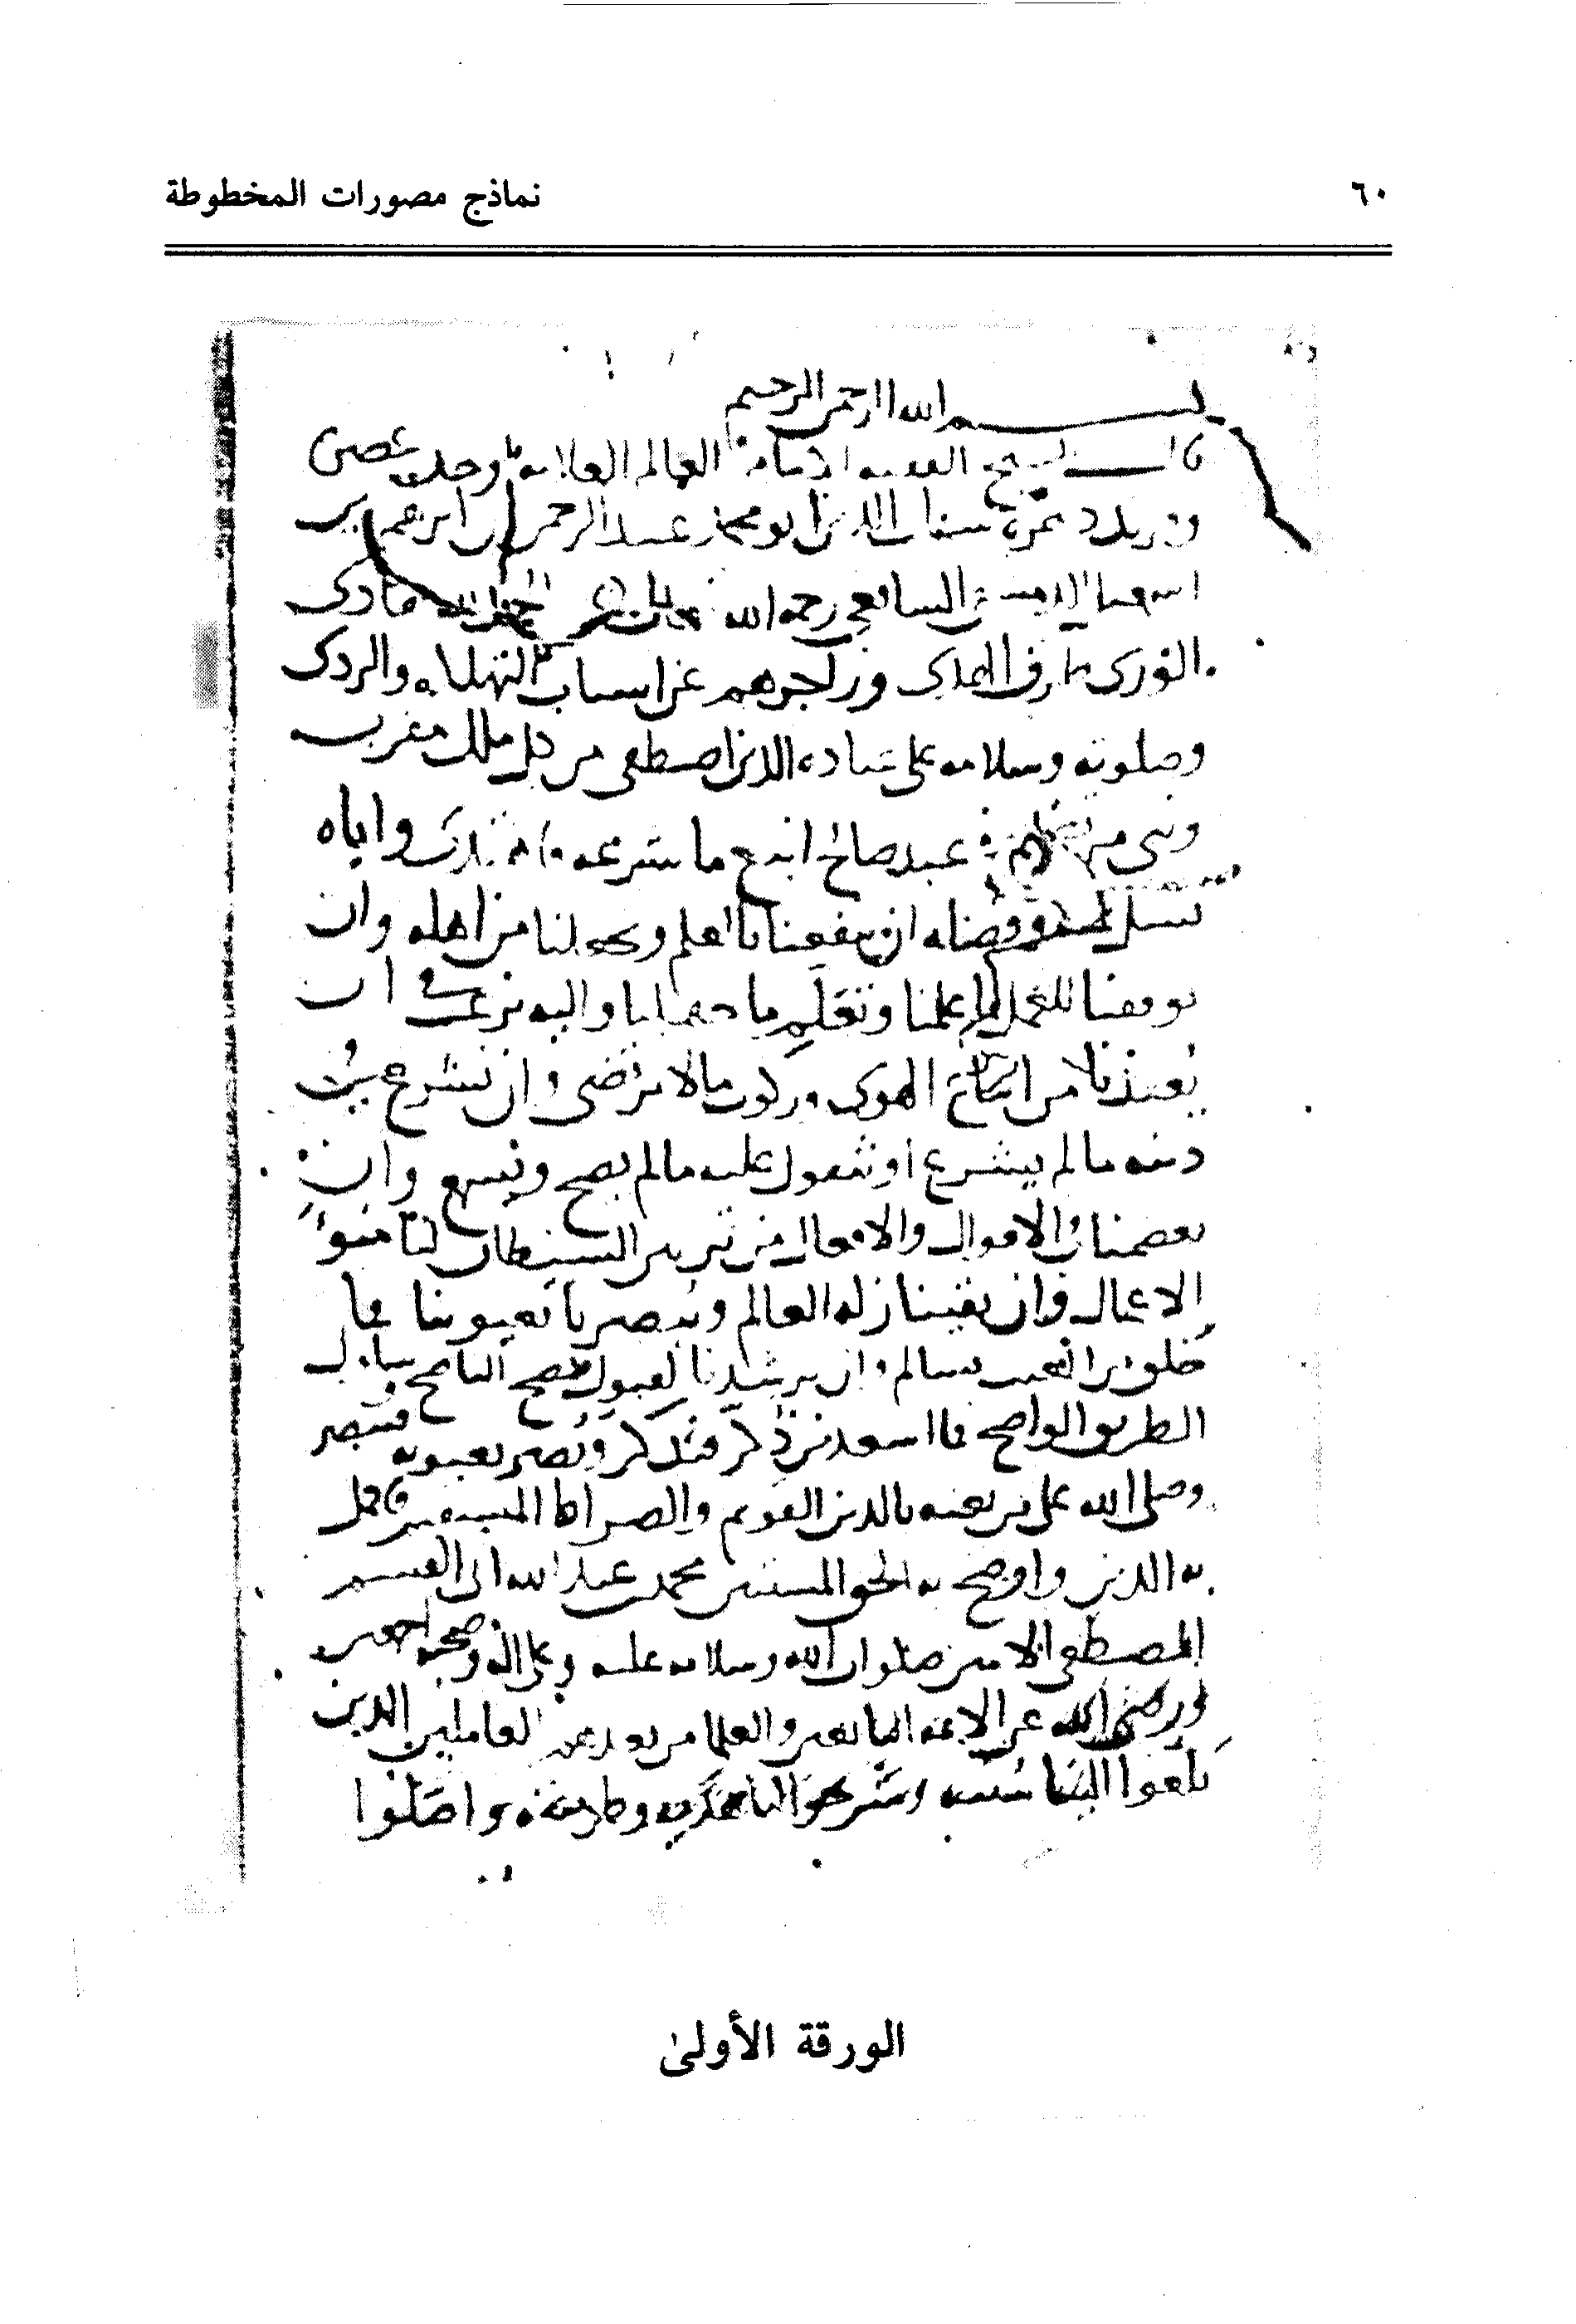 ٦٠
نماذج مصورات المخطوطة
بسم الله الرحمن الرحيم
قال الشيخ الفقيه الامام العالم العلامة وحيد عصره
وفريد دهره شهاب الدين ابو محمد عبد الرحمن بن ابرهيم بن
اسمعيل الشافعي رحمه الله الحمد لله هادى
الورى طرق الهدى وزاجرهم عن اسباب التهلكه والردى
وصلوته وسلامه على عباده الذين اصطفى من كل ملك مقرب
ونبى عبد صالح اتبع ما شرعه واياه
نسل وفضله ان ينفعنا بالعلم ويجعلنا من اهله وان
يوفقنا للعمل بما علمنا وتعلم ما جهلنا واليه نرغب فى ان
يعيذنا من اتباع الهوى وركوب مالا يرتضى وان نشرع في
دينه مالم يشرع او نتقول عليه مالم يصح ويسمع وان
يعصمنا في الاقوال والافعال من تزيين الشيطان لنا سوء
الاعمال وان يقينا زله العالم ويبصرنا بعيوبنا فما
خلق من العيب بسالم وان يرشدنا لقبول نصح الناصح بسلوك
الطريق الواضح فما اسعد من ذكر فتذكر وبصر بعيوبه فتبصر
وصلى الله على من بعثه بالدين القويم والصراط المستقيم فاكمل
به الدين واوضح به الحق المستبين محمد بن عبد الله ابى القسم
المصطفى الامين صلوات الله وسلامه عليه وعلى اله وصحبه اجمعين
ورضى الله عن الايمه التابعين والعلما من بعدهم العاملين الذين
بلغوا الينا سنته وشرحوا لنا هديه وطريقته واصلوا
الورقة الأولىٰ